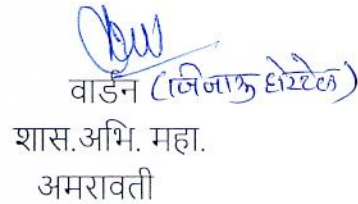 वार्डन (जिजाऊ होस्टेल)
शास.अभि. महा.
अमरावती